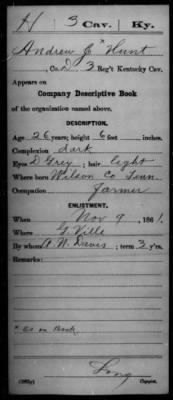 H 3 Cav. Ky.
Andrew J * Hunt
Co. D, 3 Reg't Kentucky Cav.
Appears on
Company Descriptive Book
of the organization named above.
DESCRIPTION.
Age 26 years; height 6 feet inches.
Complexion dark
Eyes D Grey; hair light
Where born Wilson Co Tenn.
Occupation Farmer
ENLISTMENT.
When Nov 9, 1861.
Where G. Ville
By whom A. W. Davis; term 3 y'rs.
Remarks:
* as on Book
Long
Copyist.